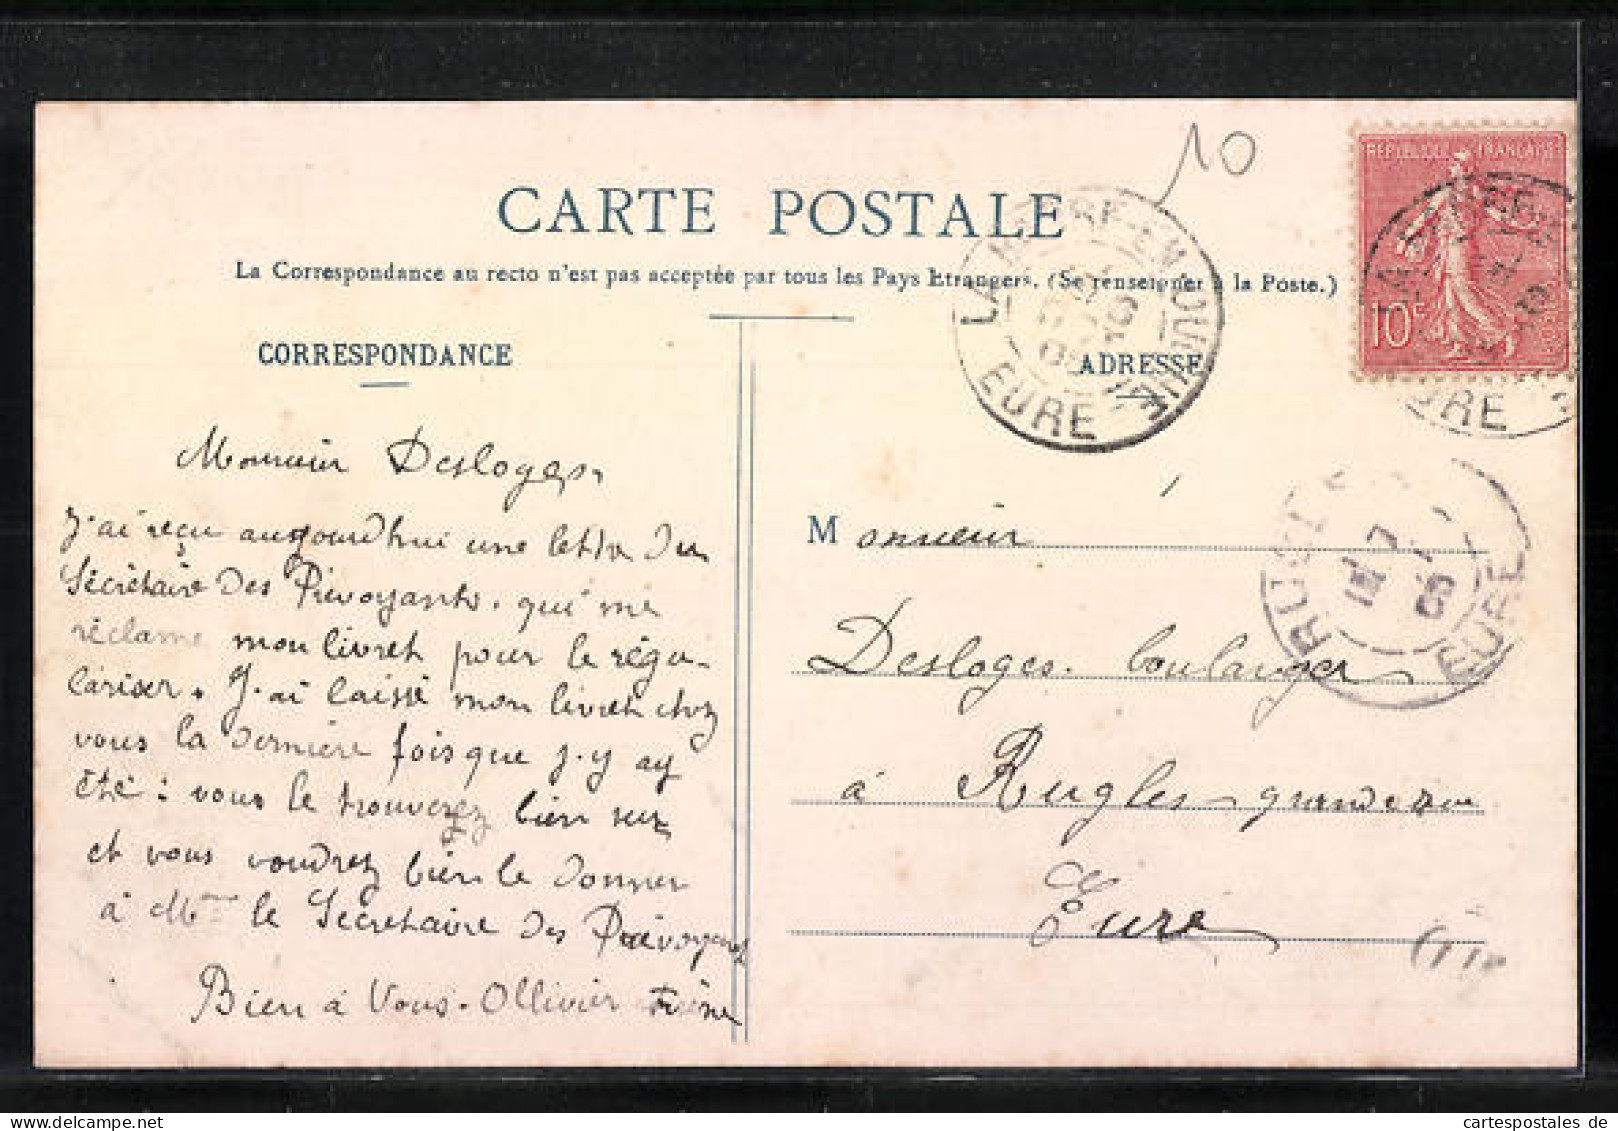 10
CARTE POSTALE
La Correspondance au recto n'est pas acceptée par tous les Pays Etrangers. (Se renseigner à la Poste.)
CORRESPONDANCE
ADRESSE
REPUBLIQUE FRANÇAISE
10c
EURE
EURE
RUGLES
EURE
Monsieur Desloges,
J'ai reçu aujourd'hui une lettre du
Sécrétaire des Prévoyants. qui me
réclame mon livret pour le régu-
lariser. J'ai laissé mon livret chez
vous la dernière fois que j'y ay
été : vous le trouverez bien sur
et vous voudrez bien le donner
à Mr le Secretaire des Prévoyants
Bien à Vous. Ollivier
Monsieur
Desloges. boulanger
à Rugles grande rue
Eure
cartespostales.de